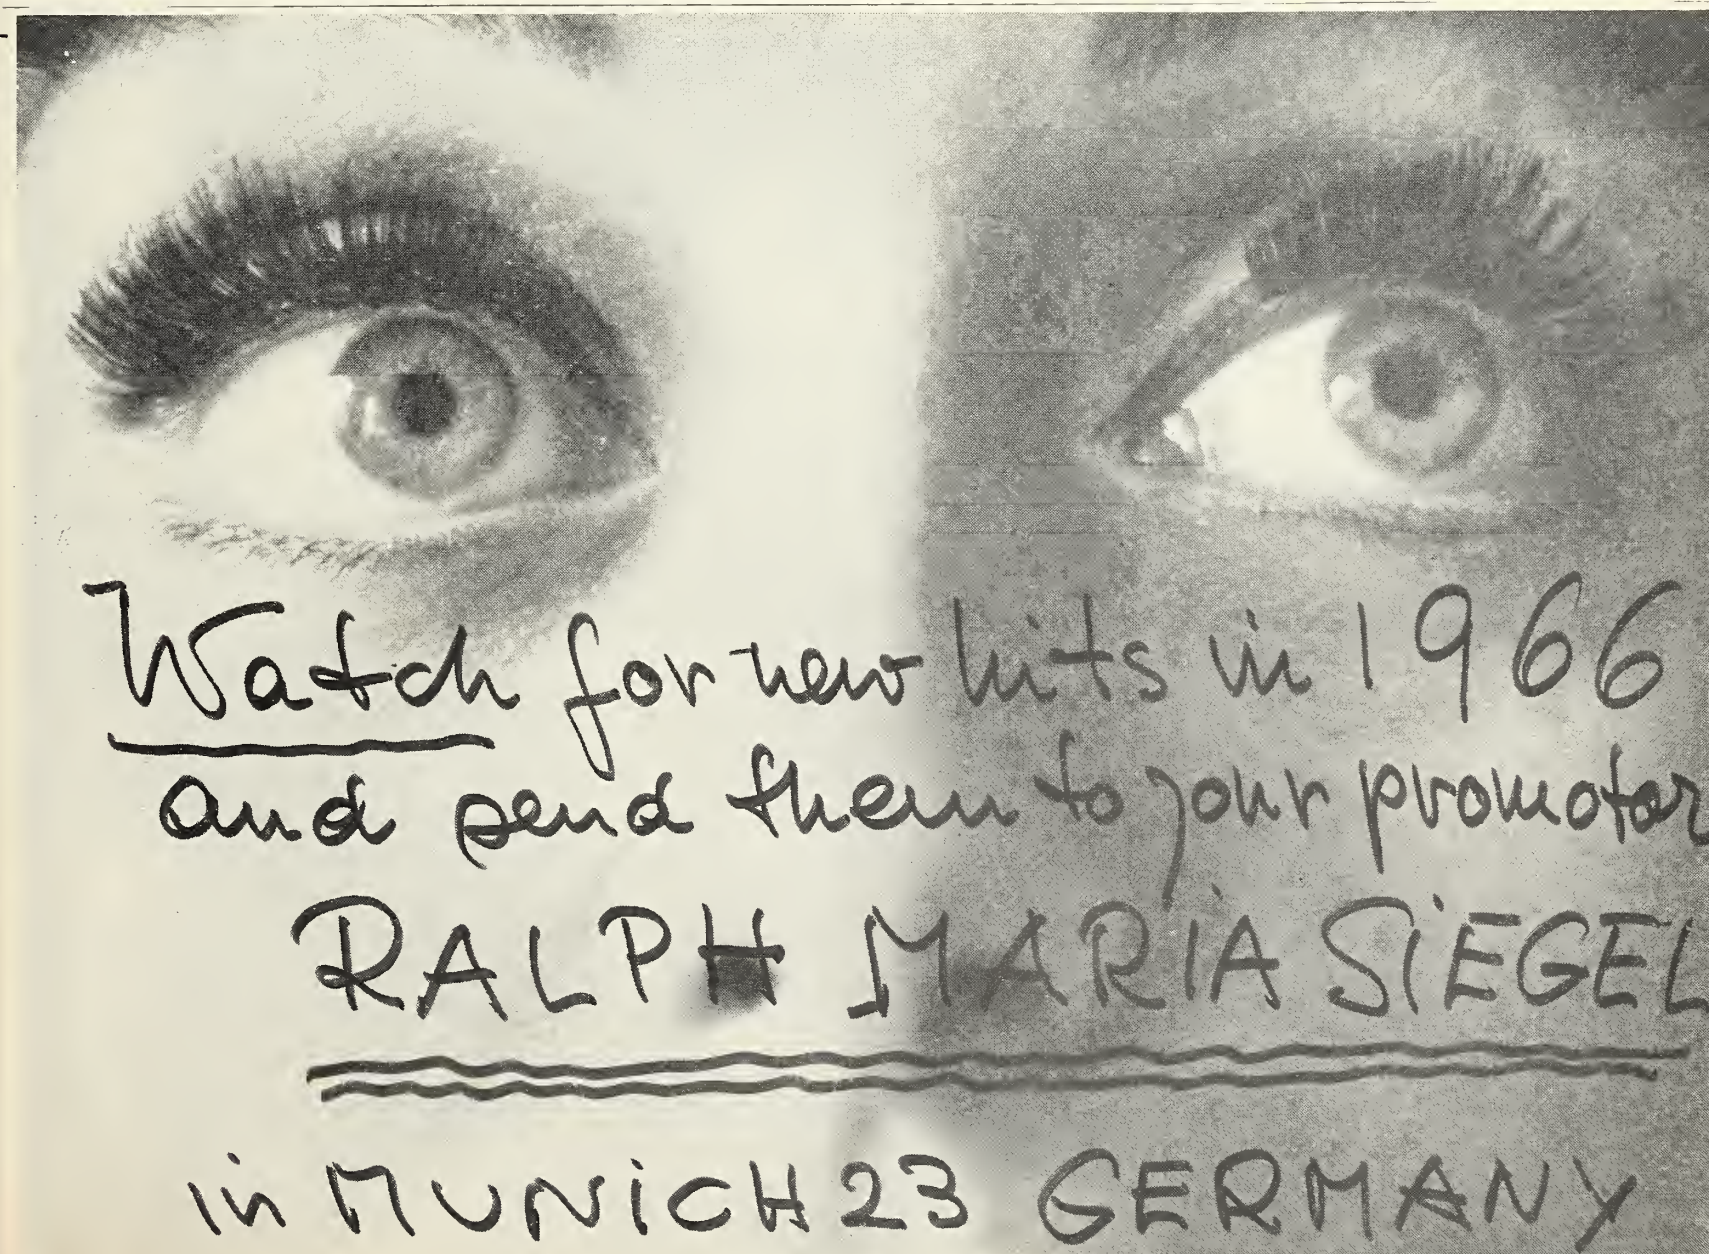 Watch for new hits in 1966
and send them to your promotor
RALPH MARIA SIEGEL
in MUNICH 23 GERMANY